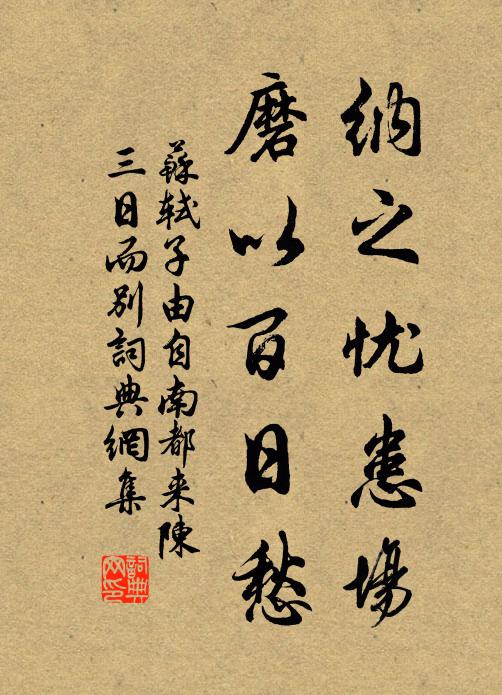 納之忧患場
磨以百日愁
蘇軾子由自南都来陳
三日而别詞典網集
詞典
网印